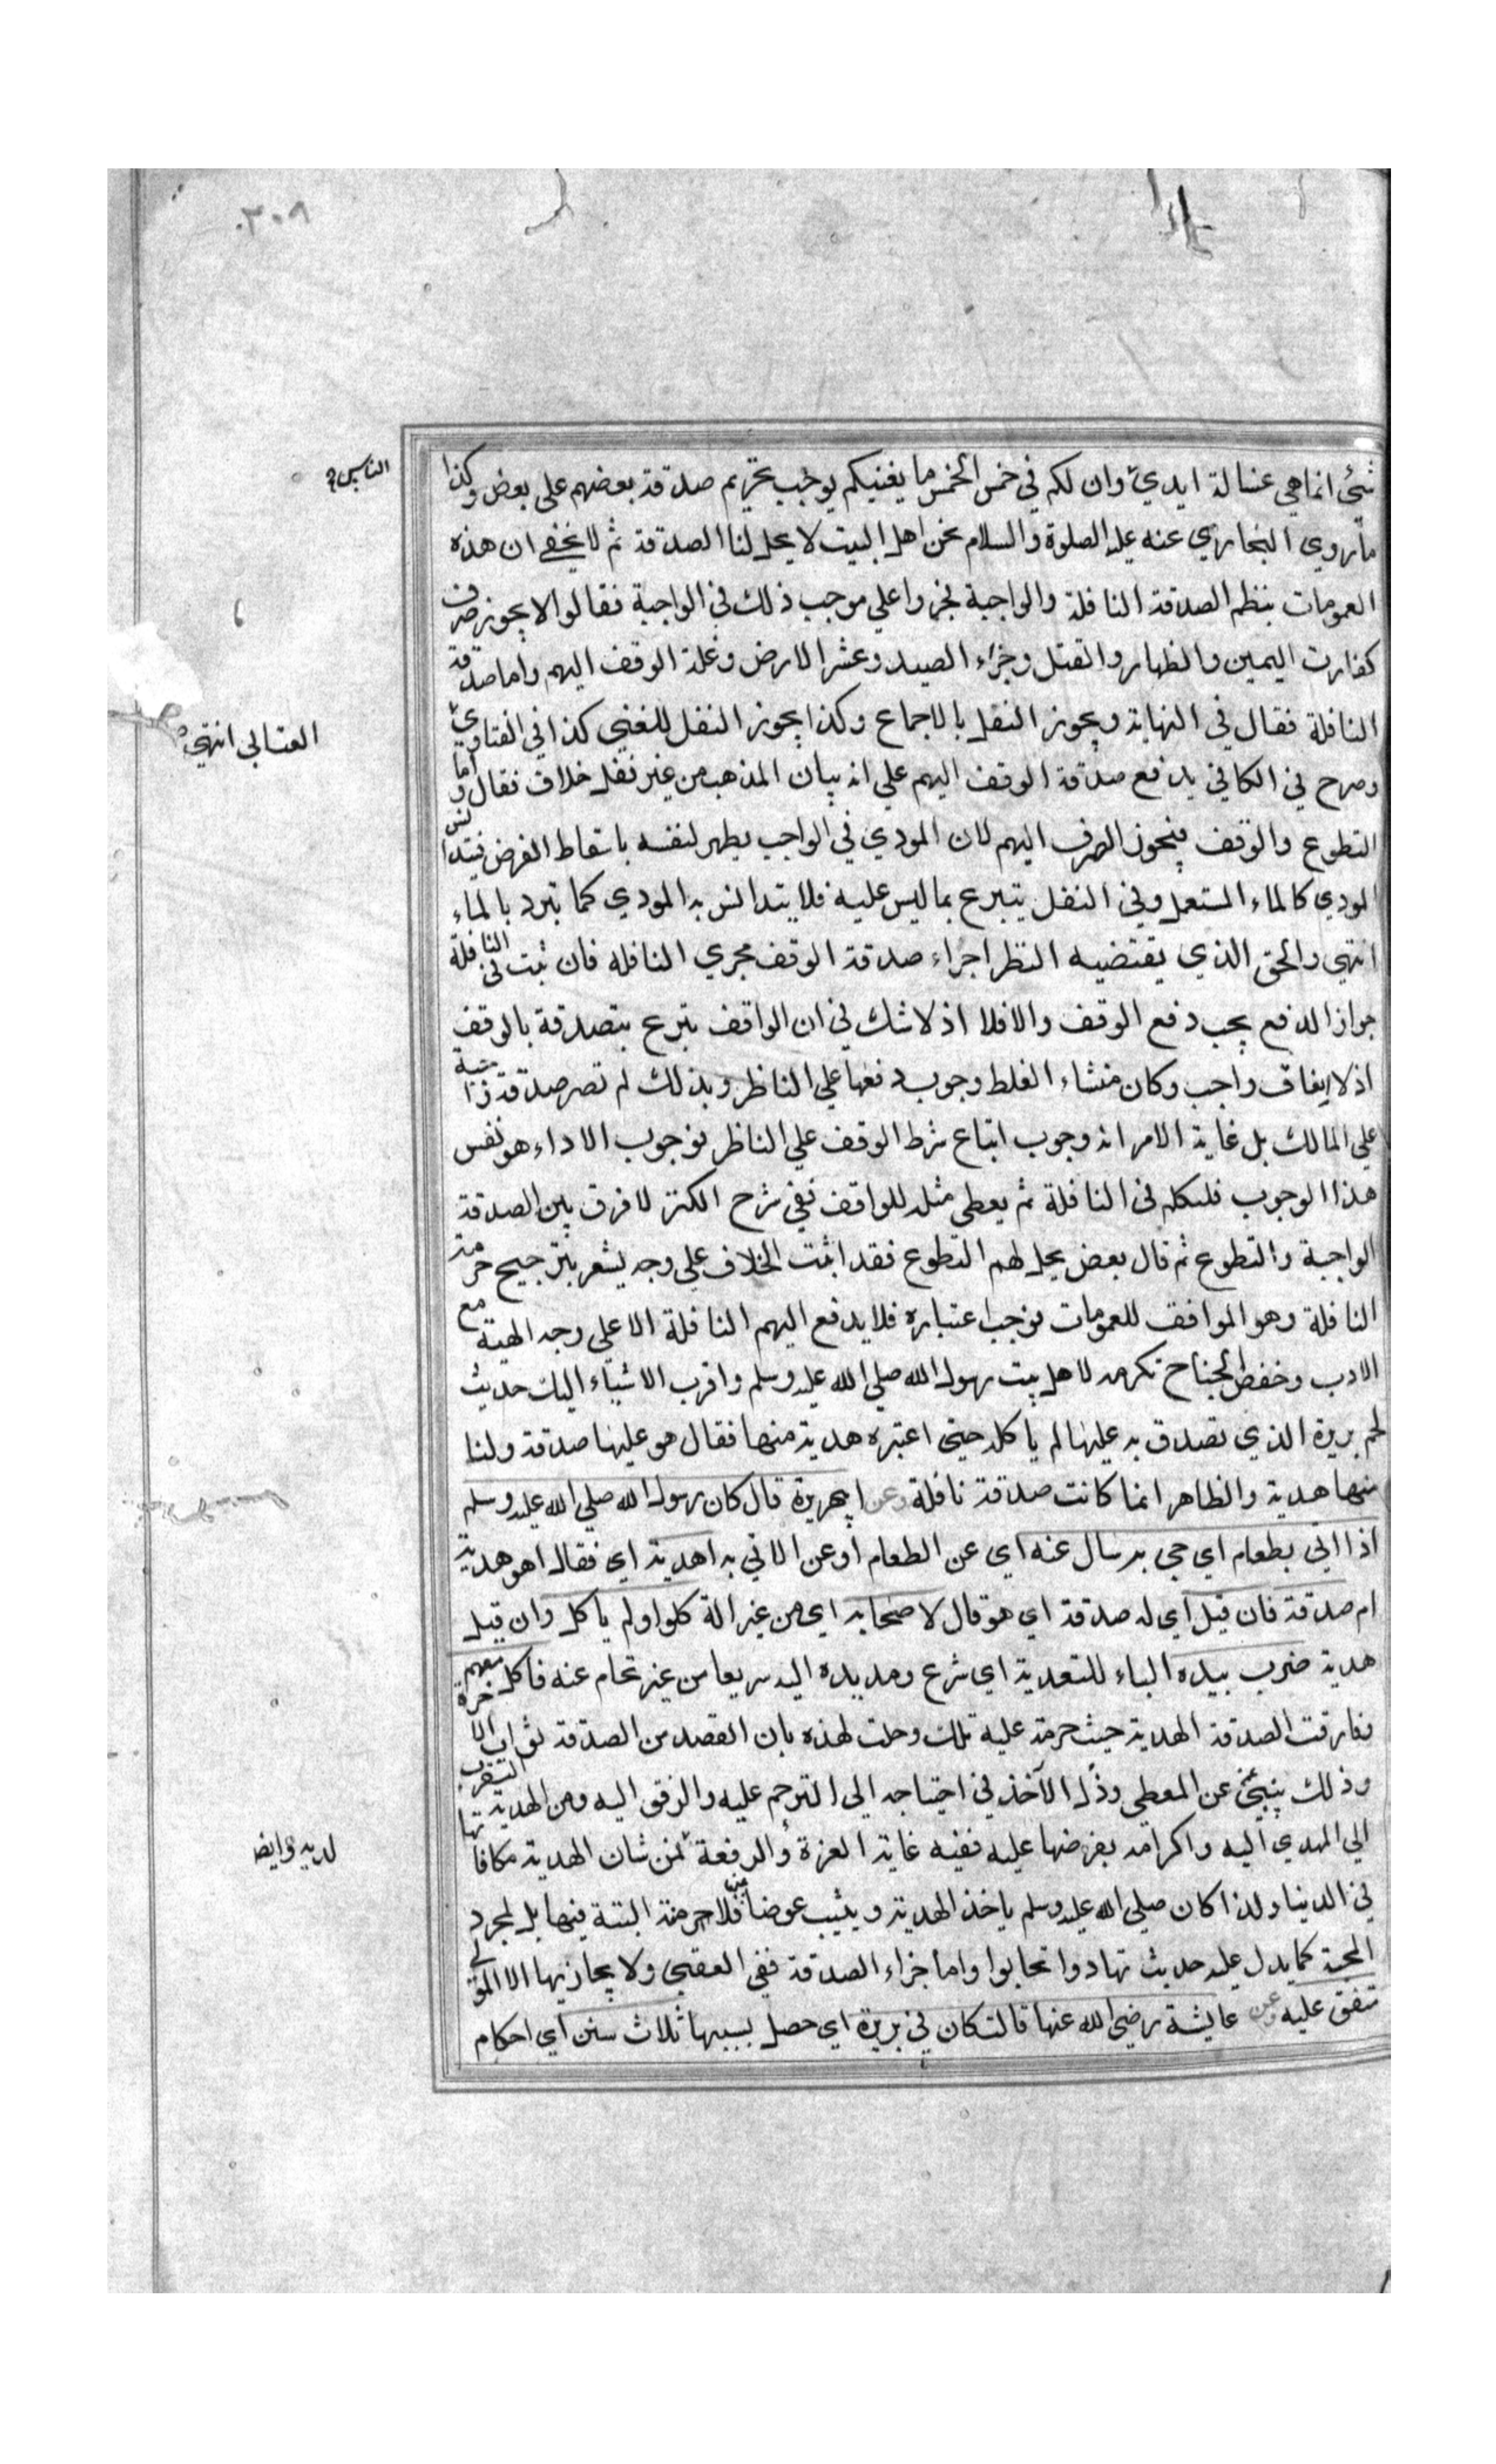 ٣٠٨
شئ انما هي غسالة ايدي وان لكم في خمس الخمس ما يغنيكم يوجب تحريم صدقة بعضهم على بعض وكذا
الناس صح
ما روي البخاري عنه عليه الصلوة والسلام نحن اهل البيت لا يحل لنا الصدقة ثم لا يخفى ان هذه
العمومات ينظم الصدقة النافلة والواجبة فجروا علي موجب ذلك في الواجبة فقالوا لا يجوز صرف
كفارت اليمين والظهار والقتل وجزاء الصيد وعشر الارض وغلة الوقف اليهم واما صدقة
النافلة فقال في النهاية ويجوز النفل بالاجماع وكذا يجوز النفل للغني كذا في الفتاوي
العتابي انتهي
وصرح في الكافي بدفع صدقة الوقف اليهم علي انه بيان المذهب من غير نقل خلاف فقال واما
التطوع والوقف فيجوز الصرف اليهم لان المودي في الواجب يطهر لنفسه باسقاط الفرض فيتدنس
المودي كالماء المستعمل وفي النفل يتبرع بما ليس عليه فلا يتدانس به المودي كما يتبرد بالماء
انتهي والحق الذي يقتضيه النظر اجراء صدقة الوقف مجري النافله فان ثبت في النافلة
جواز الدفع يجب دفع الوقف والا فلا اذ لا شك في ان الواقف يتبرع بتصدقة بالوقف
اذ لا ايفاف واجب وكان منشاء الغلط وجوب دفعها علي الناظر وبذلك لم تصر صدقة واجبة
علي المالك بل غاية الامر انه وجوب اتباع شرط الوقف علي الناظر فوجوب الاداء هو نفس
هذا الوجوب فلنكلم في النافلة ثم يعطي مثله للواقف ففي شرح الكنز لا فرق بين الصدقة
الواجبة والتطوع ثم قال بعض يحل لهم التطوع فقد اثبت الخلاف علي وجه يشعر بترجيح حرمة
النافلة وهو الموافق للعمومات فوجب اعتباره فلا يدفع اليهم النافلة الا علي وجه الهبة مع
الادب وخفض الجناح تكرمه لاهل بيت رسول الله صلي الله عليه وسلم واقرب الاشياء اليك حديث
لحم بريرة الذي تصدق به عليها لم ياكله حتي اعتبره هدية منها فقال هو عليها صدقة ولنا
منها هدية والظاهر انما كانت صدقة نافلة وعن ابي هريرة قال كان رسول الله صلي الله عليه وسلم
اذا اتي بطعام اي جي به سال عنه اي عن الطعام او عن الاتي به اهدية اي فقال اهو هدية
ام صدقة فان قيل اي له صدقة اي هو قال لاصحابه اي من غير الة كلوا ولم ياكل وان قيل
هدية ضرب بيده الباء للتعدية اي شرع ومد يده اليه سريعا من غير تحام عنه فاكل معهم
فارقت الصدقة الهدية حيث حرمة عليه تلك وحلت لهذه بان القصد من الصدقة ثواب الاخرة
وذلك ينبئ عن المعطي وذل الآخذ في احتياجه الي الترحم عليه والرفق اليه ومن الهدية التقرب
الي المهدي اليه واكرامه بعرضها عليه ففيه غاية العزة والرفعة فمن شان الهدية مكافاتها
لديه وايضا
في الدنيا ولذا كان صلي الله عليه وسلم ياخذ الهدية ويثيب عوضا عنها فلا حرمة البتة فيها بل لمجرد
المحبة كما يدل عليه حديث تهادوا تحابوا واما جزاء الصدقة ففي العقبى ولا يجازيها الا المولي
متفق عليه وعن عايشة رضي الله عنها قالت كان في بريرة اي حصل بسببها ثلاث سنن اي احكام